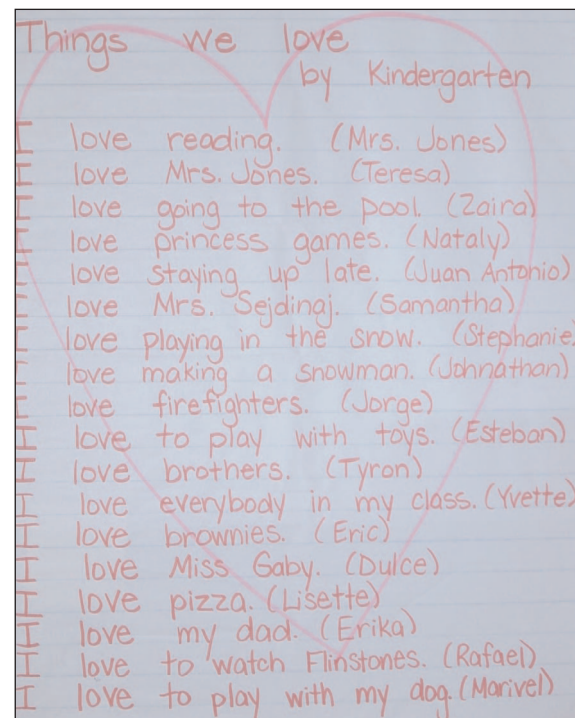 Things we love
by Kindergarten
I love reading. (Mrs. Jones)
I love Mrs. Jones. (Teresa)
I love going to the pool. (Zaira)
I love princess games. (Nataly)
I love staying up late. (Juan Antonio)
I love Mrs. Sejdinaj. (Samantha)
I love playing in the snow. (Stephanie)
I love making a snowman. (Johnathan)
I love firefighters. (Jorge)
I love to play with toys. (Esteban)
I love brothers. (Tyron)
I love everybody in my class. (Yvette)
I love brownies. (Eric)
I love Miss Gaby. (Dulce)
I love pizza. (Lisette)
I love my dad. (Erika)
I love to watch Flinstones. (Rafael)
I love to play with my dog. (Marivel)